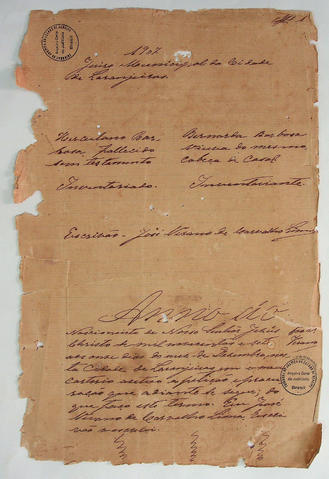 1907
Juizo Municipal da Cidade
de Laranjeiras.
Herculano Bar
bosa, fallecido
sem testamento
Inventariado.
Bernarda Barbosa
viuva do mesmo
cabeça de Casal
Inventariante
Escrivão José Verano de Carvalho Lima
Anno do
Nascimento de Nosso Senhor Jesus
Christo de mil novecentos e sete,
aos onze dias do mez de Setembro, n
a Cidade de Laranjeiras em o meu
cartorio autuo a petição e procu
ração que adiante se segue, do
que faço este termo. Eu, José
Verano de Carvalho Lima, Escri
vão o escrevi.